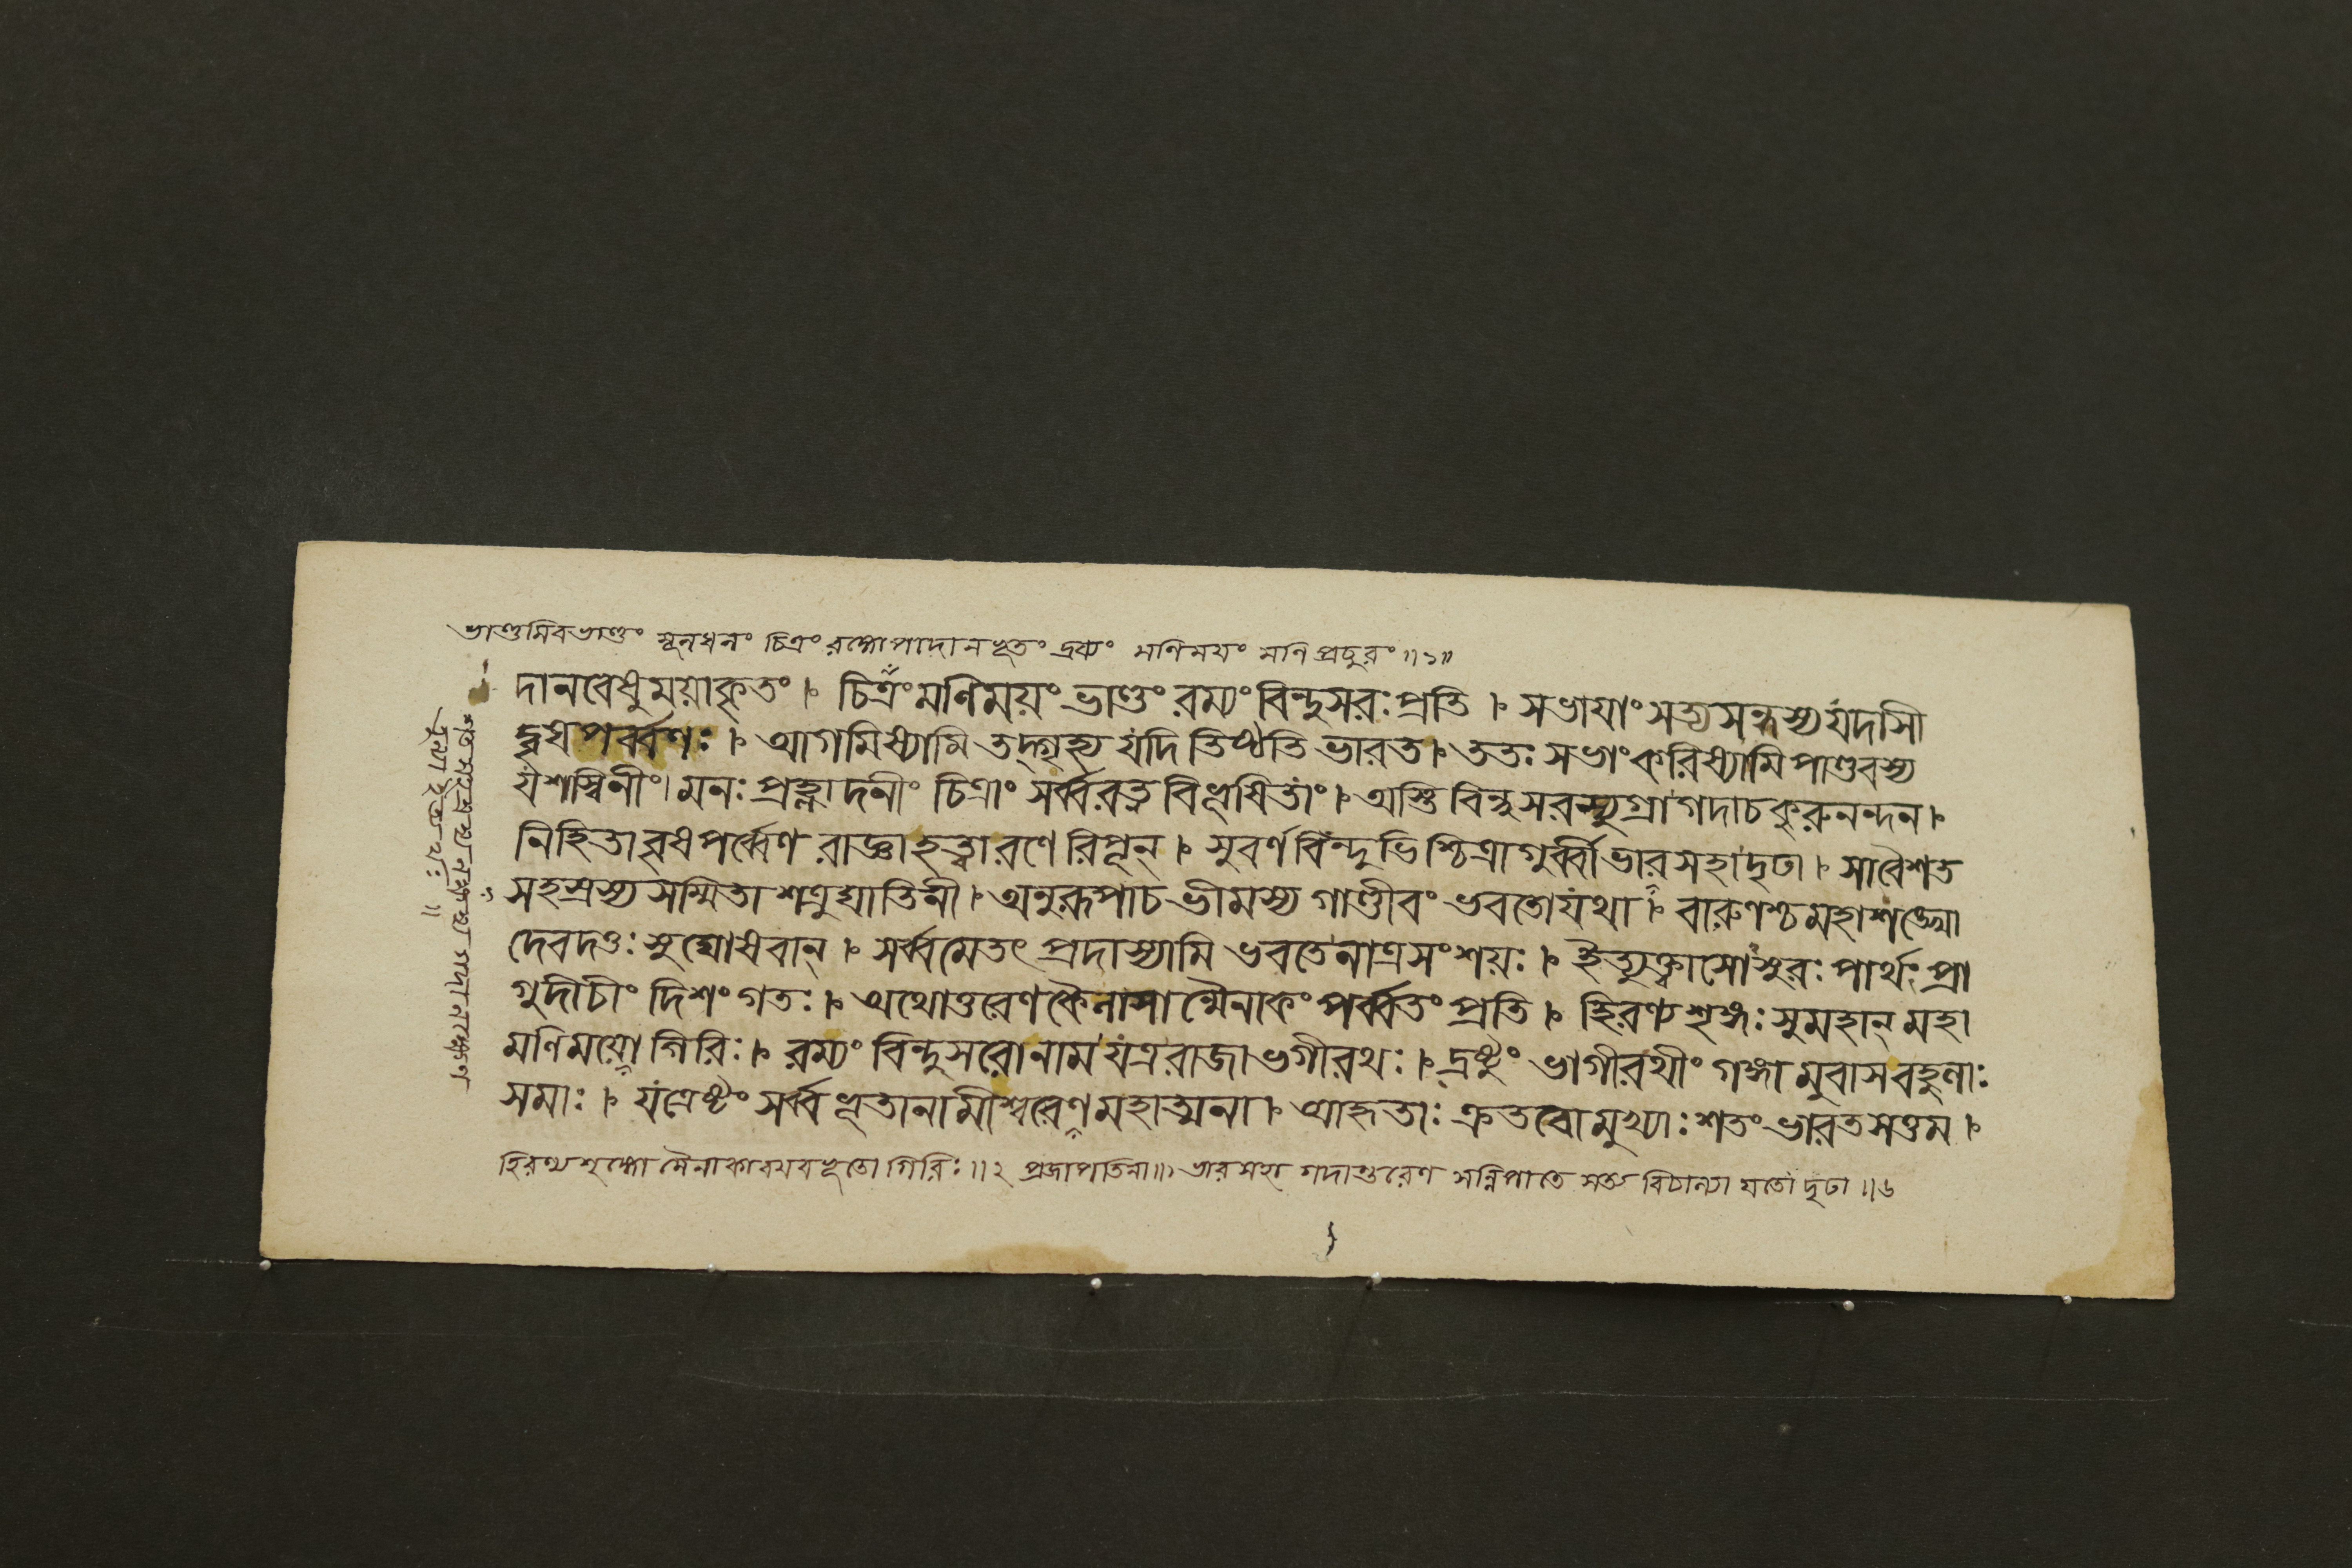 ভাণ্ডমিবভাণ্ডং মূলধনং চিত্রং রম্ভোপাদানভূতং দ্রব্যং মণিময়ং মণিপ্রচুরং ॥১॥
দানবেষুময়াকৃতং । চিত্রংমণিময়ং ভাণ্ডং রম্যং বিন্দুসরঃপ্রতি । সভাযাং সত্যসন্ধস্য যদাসী
দ্বৃষপর্ব্বণঃ । আগমিষ্যামি তদ্গৃহ্য যদি তিষ্ঠতি ভারত । ততঃ সভাং করিষ্যামি পাণ্ডবস্য
যশস্বিনীং । মনঃ প্রহ্লাদনীং চিত্রাং সর্ব্বরত্নবিভূষিতাং । অস্তি বিন্দুসরস্যুগ্রা গদাচ কুরুনন্দন ।
নিহিতা বৃষপর্ব্বেণ রাজ্ঞা হত্বারণে রিপূন্ । সুবর্ণবিন্দুভিশ্চিত্রাগুর্ব্বীভারসহাদৃঢা । সাবৈশত
সহস্রস্য সম্মিতা শত্রুঘাতিনী । অনুরূপাচ ভীমস্য গাণ্ডীবং ভবতো যথা । বারুণশ্চ মহাশঙ্খো
দেবদত্তঃ সুঘোষবান্ । সর্ব্বমেতৎ প্রদাস্যামি ভবতেনাত্রসংশয়ঃ । ইত্যুক্ত্বাসোসুরঃ পার্থং প্রা
গুদীচীং দিশং গতঃ । অথোত্তরেণ কৈলাসান্মৈনাকং পর্ব্বতং প্রতি । হিরণ্যশৃঙ্গঃ সুমহান্ মহা
মণিময়ো গিরিঃ । রম্যং বিন্দুসরোনাম যত্ররাজা ভগীরথঃ । দ্রষ্টুং ভাগীরথীং গঙ্গামুবাসবহুলাঃ
সমাঃ । যত্রেষ্টং সর্ব্বভূতানামীশ্বরেণ মহাত্মনা । আহৃতাঃ ক্রতবো মুখ্যাঃ শতং ভারতসত্তম ।
হিরণ্যশৃঙ্গো মৈনাকাবয়বভূতো গিরিঃ ॥২ প্রজাপতিনা॥ ভারসহা গদান্তরেণ সন্নিপাতে যতো দৃঢা ॥৬